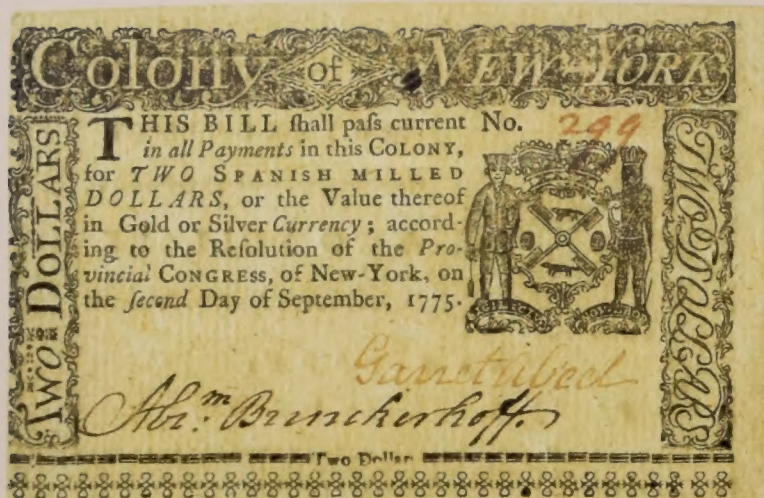 Colony of NEW-YORK
TWO DOLLARS
THIS BILL ſhall paſs current
in all Payments in this COLONY,
for TWO SPANISH MILLED
DOLLARS, or the Value thereof
in Gold or Silver Currency; accord-
ing to the Reſolution of the Pro-
vincial CONGRESS, of New-York, on
the ſecond Day of September, 1775.
No. 299
TWO DOLLARS
Abr.m Brinckerhoff.
Two Dollar